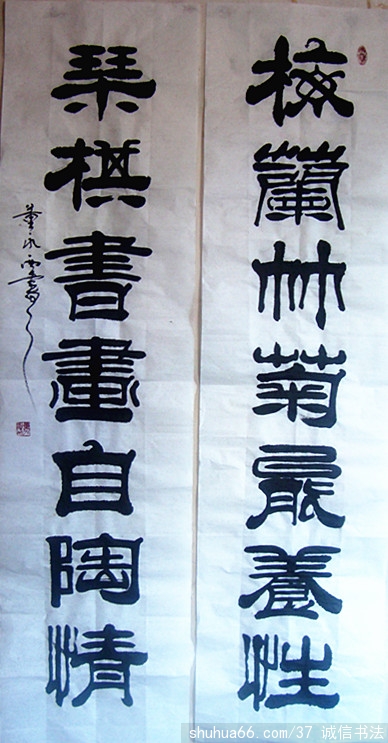 梅蘭竹菊最養性
琴棋書畫自陶情
shuhua66.com/37 诚信书法